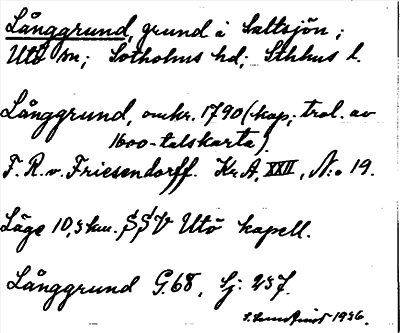 Långgrund, grund i Saltsjön;
Utö sn; Sotholms hd; Sthlms l.
Långgrund, omkr. 1790 (kop; trol. av
1600-talskarta).
F. R. v. Friesendorff. Kr. A. XXII, N:o 19.
Läge 10,5 km. SSV Utö kapell.
Långgrund G.68, Sj: 257.
1936.